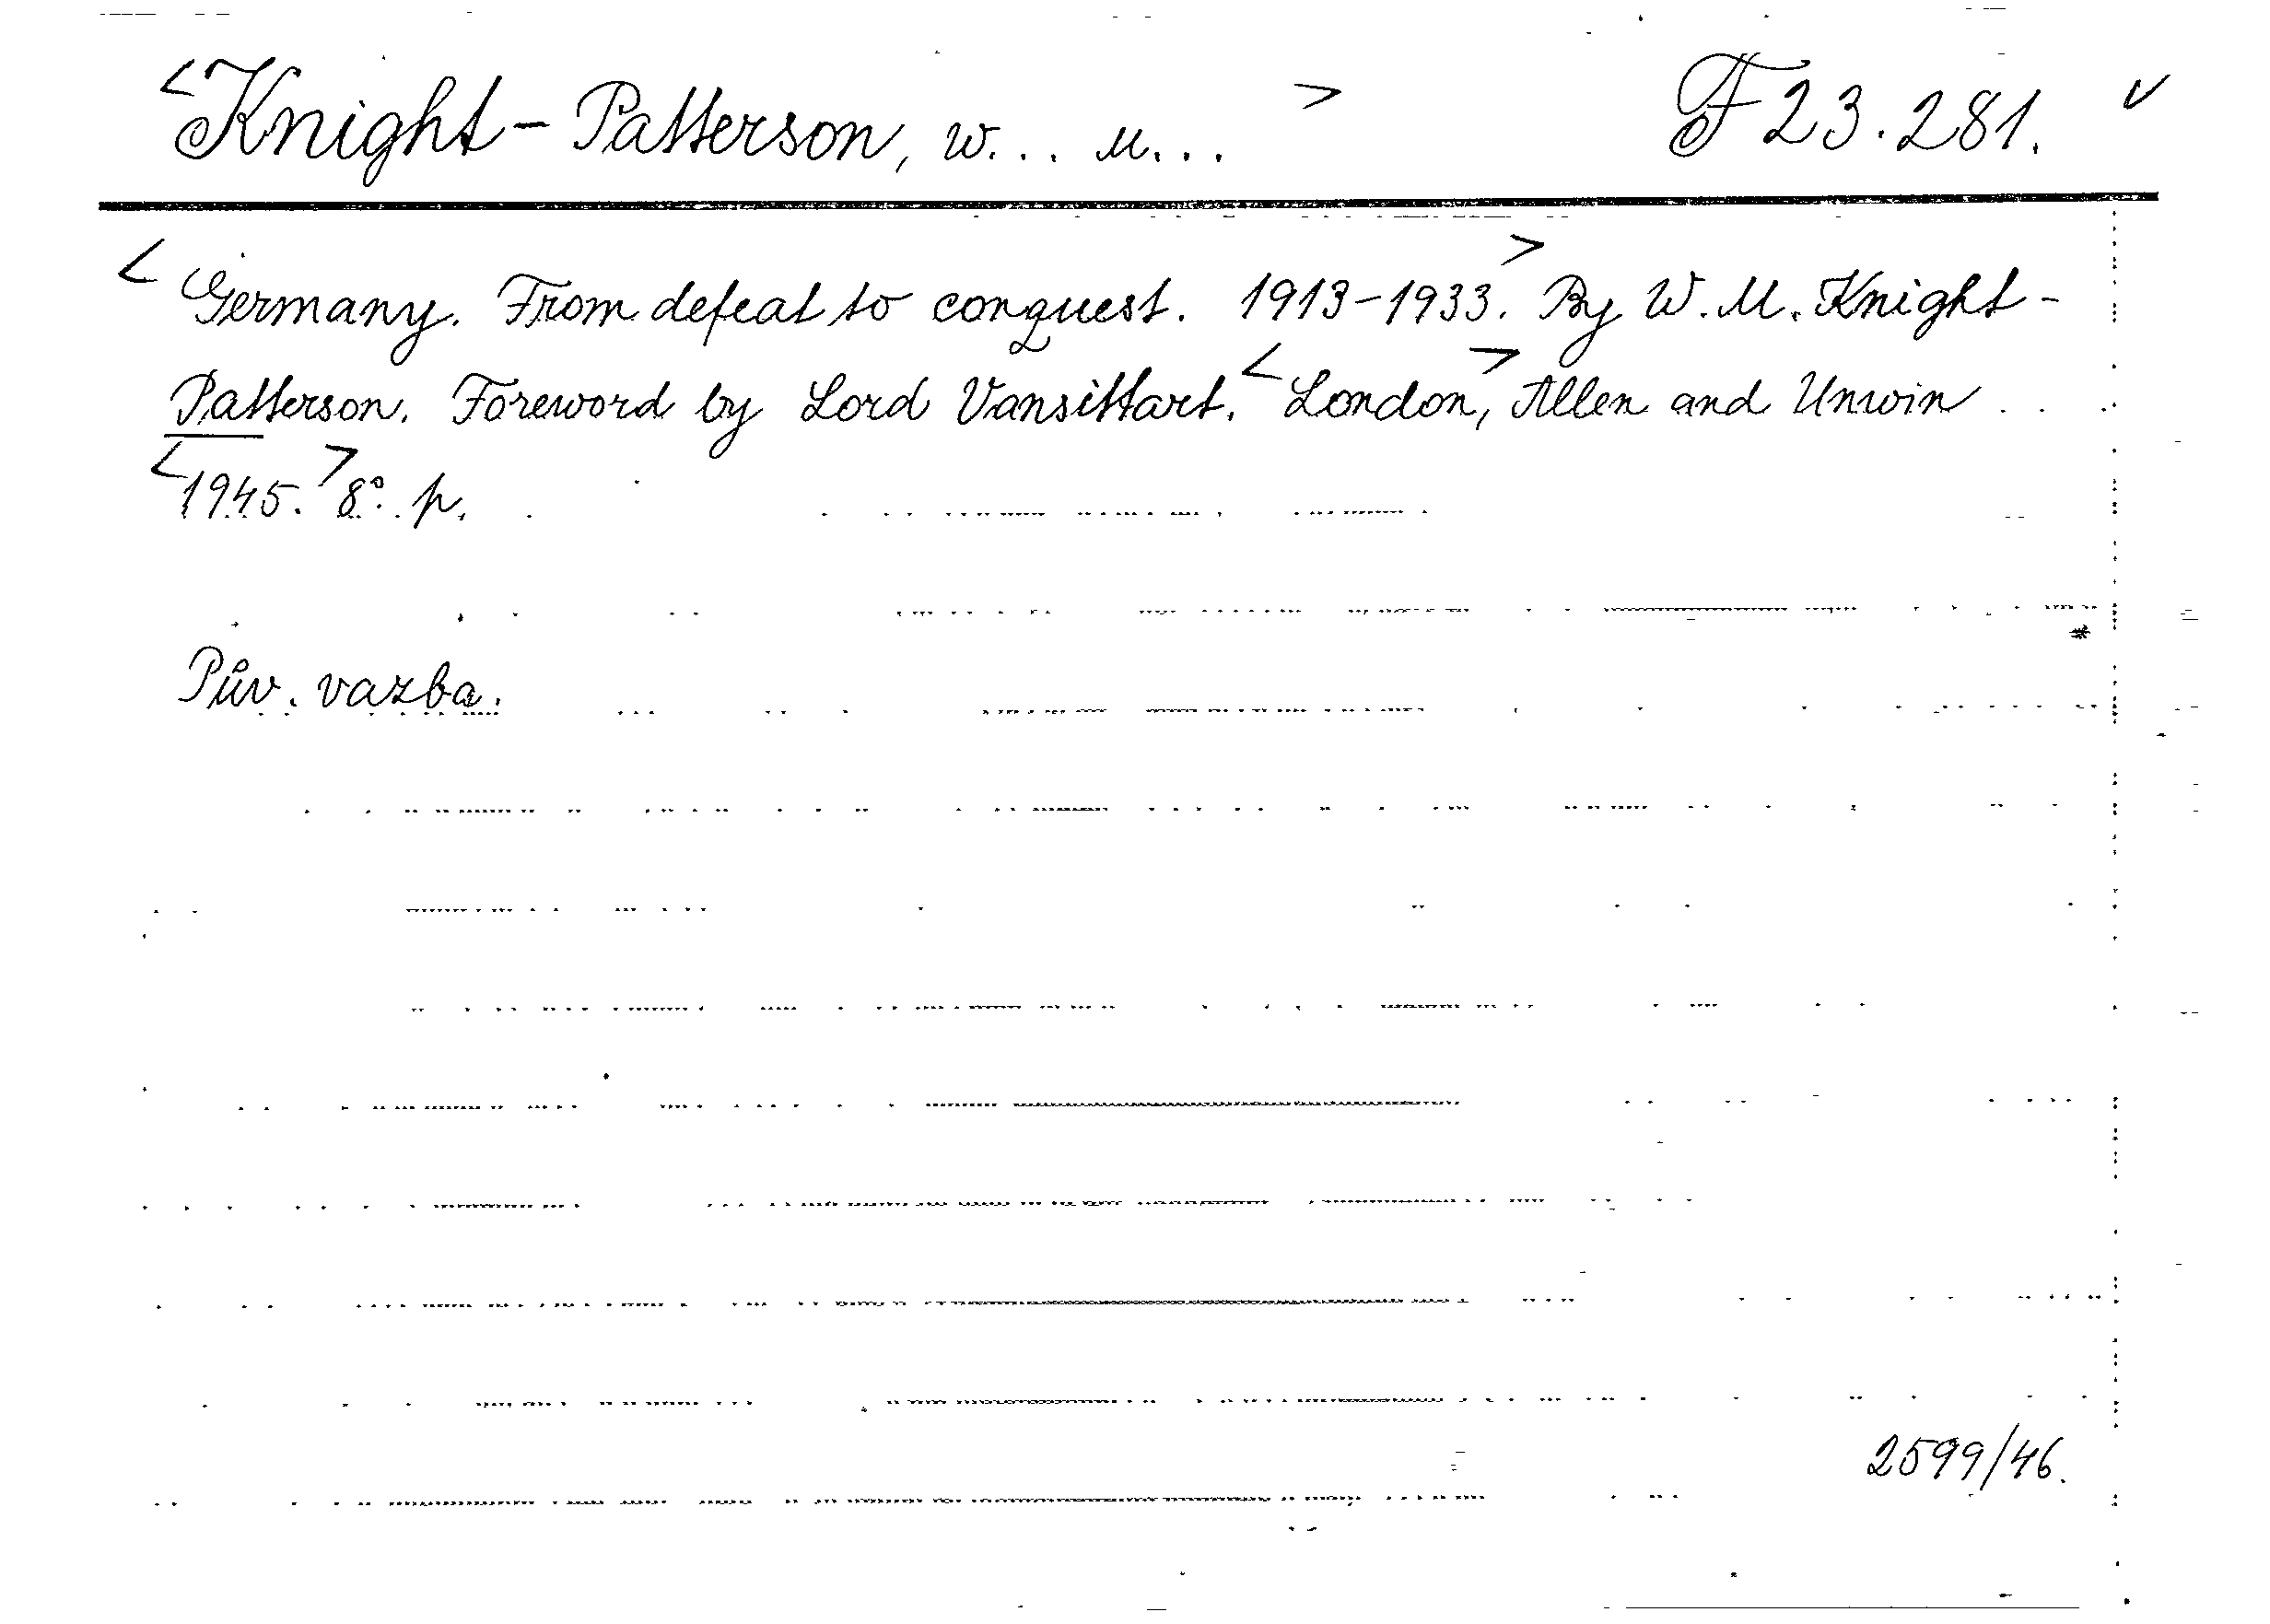 <Knight-Patterson, W... M...> F 23.281. ✓
<Germany. From defeat to conquest. 1913-1933.> By W. M. Knight-
Patterson. Foreword by Lord Vansittart. <London,> Allen and Unwin
<1945.> 8°. p.
Pův. vazba.
2599/46.